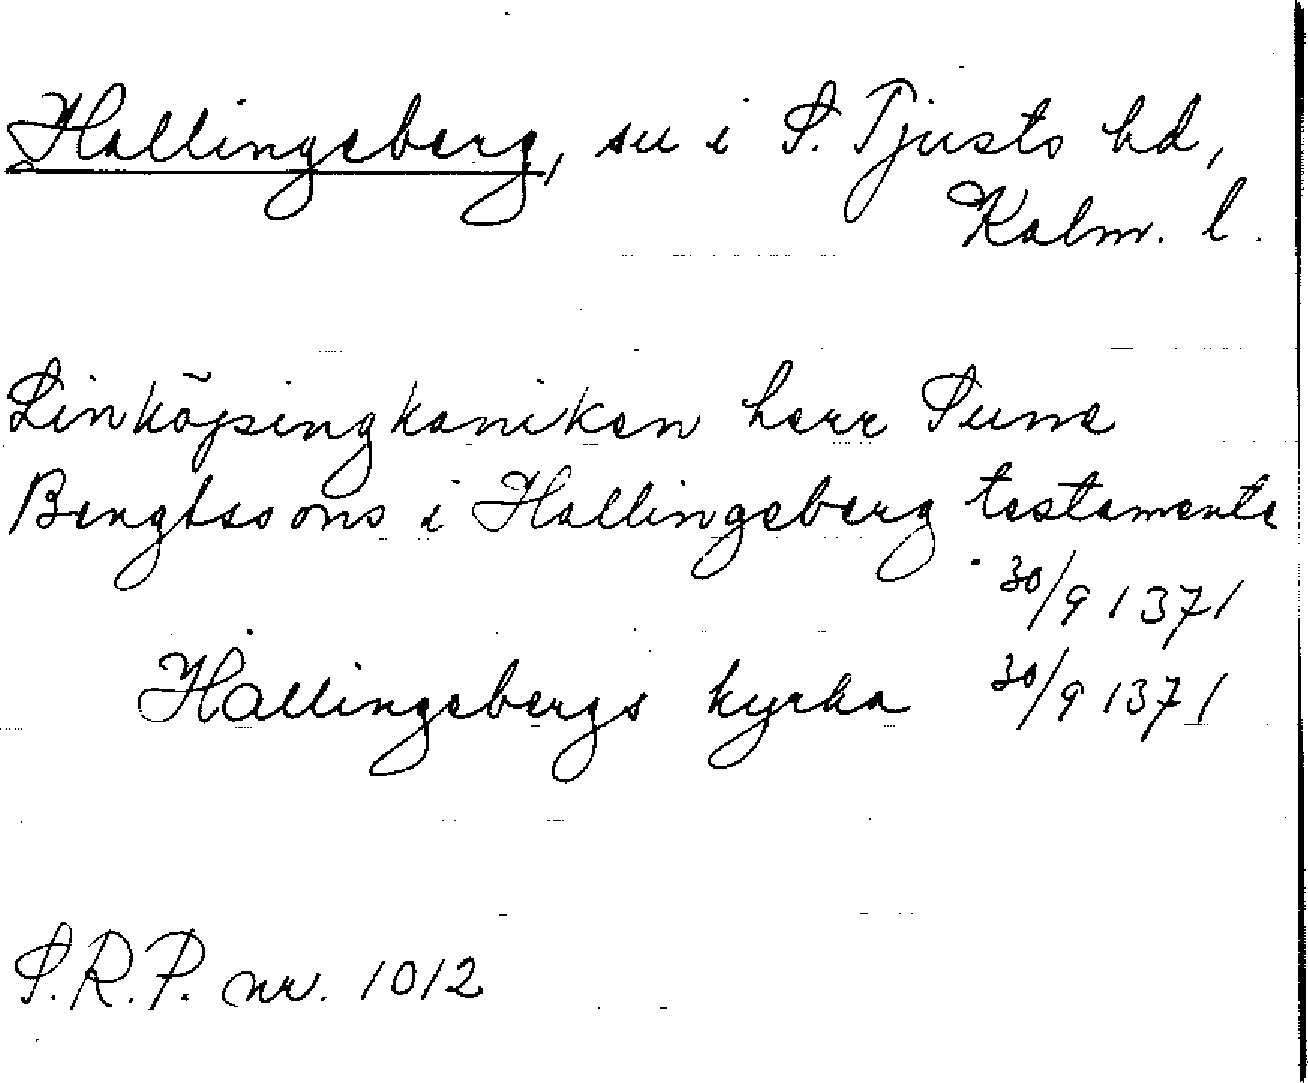 Hallingeberg, su i S. Tjusts hd,
Kalm. l.
Linköpingkaniken herr Sune
Bengtssons i Hallingeberg testamente
30/9 1371
Hallingebergs kyrka 30/9 1371
S.R.P. nr. 1012